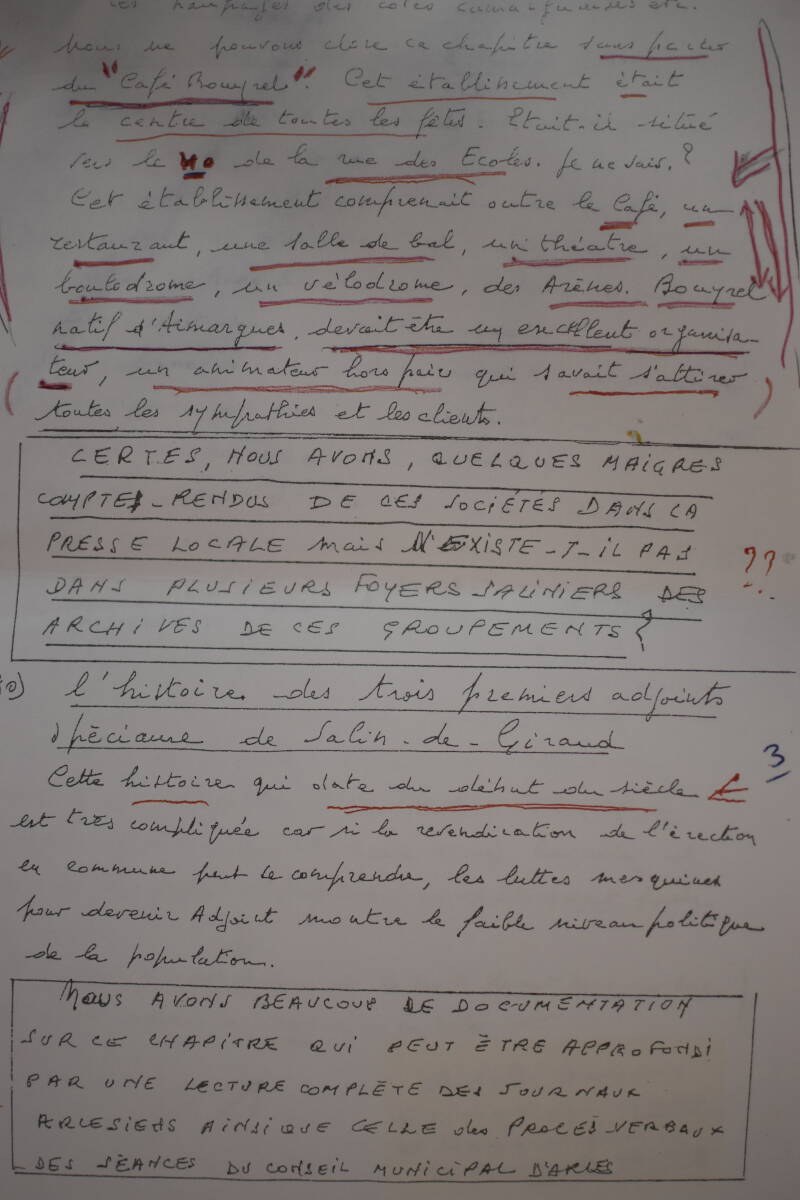 les hampages des côtés camarguaises etc.
Nous ne pouvons clore ce chapitre sans parler
du "Café Bouyrel". Cet établissement était
le centre de toutes les fêtes. Etait-il situé
vers le 40 de la rue des Ecoles. Je ne sais.?
Cet établissement comprenait outre le Café, un
restaurant, une salle de bal, un théatre, un
boulodrome, un vélodrome, des Arènes. Bouyrel
natif d'Aimargues, devait être un excellent organisa-
teur, un animateur hors pair qui savait s'attirer
toutes les sympathies et les clients.
CERTES, NOUS AVONS, QUELQUES MAIGRES
COMPTES-RENDUS DE CES SOCIÉTÉS DANS LA
PRESSE LOCALE MAIS N'EXISTE-T-IL PAS
DANS PLUSIEURS FOYERS SALINIERS DES
ARCHIVES DE CES GROUPEMENTS ??
l'histoire des trois premiers adjoints
spéciaux de Salin-de-Giraud
3
Cette histoire qui date du début du siècle
est très compliquée car si la revendication de l'érection
en commune peut se comprendre, les luttes mesquines
pour devenir Adjoint montre le faible niveau politique
de la population.
NOUS AVONS BEAUCOUP DE DOCUMENTATION
SUR CE CHAPITRE QUI PEUT ÊTRE APPROFONDI
PAR UNE LECTURE COMPLÈTE DES JOURNAUX
ARLESIENS AINSI QUE CELLE des PROCÈS VERBAUX
DES SÉANCES DU CONSEIL MUNICIPAL D'ARLES